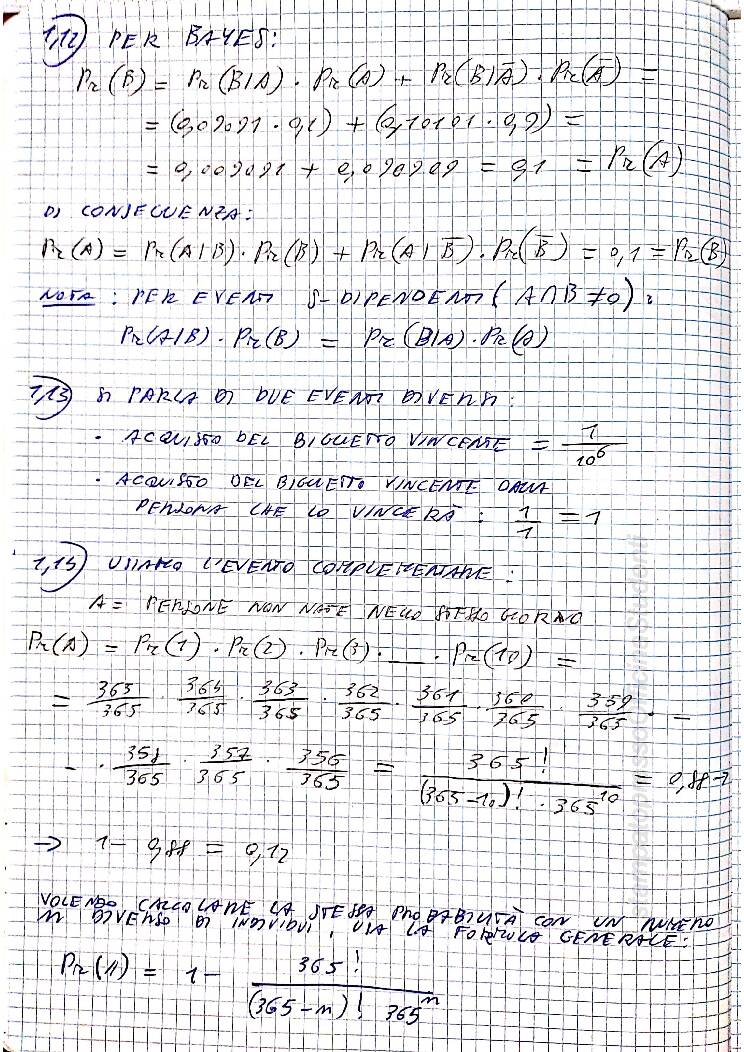 1,12) PER BAYES:
Pr(B) = Pr(B|A) · Pr(A) + Pr(B|A̅) · Pr(A̅) =
= (0,09091 · 0,1) + (0,10101 · 0,9) =
= 0,009091 + 0,090909 = 0,1 = Pr(A)
DI CONSEGUENZA:
Pr(A) = Pr(A|B) · Pr(B) + Pr(A|B̅) · Pr(B̅) = 0,1 = Pr(B)
NOTA: PER EVENTI S-DIPENDENTI (A∩B ≠ 0):
Pr(A|B) · Pr(B) = Pr(B|A) · Pr(A)
1,13) SI PARLA DI DUE EVENTI DIVERSI:
· ACQUISTO DEL BIGLIETTO VINCENTE = 1/10⁶
· ACQUISTO DEL BIGLIETTO VINCENTE DALLA
PERSONA CHE LO VINCERÀ: 1/1 = 1
1,15) USIAMO L'EVENTO COMPLEMENTARE:
A = PERSONE NON NATE NELLO STESSO GIORNO
Pr(A) = Pr(1) · Pr(2) · Pr(3) · __ · Pr(10) =
= 365/365 · 364/365 · 363/365 · 362/365 · 361/365 · 360/365 · 359/365 · –
– · 358/365 · 357/365 · 356/365 = 365!/((365-10)! · 365¹⁰) = 0,88 →
→ 1 - 0,88 = 0,12
VOLENDO CALCOLARE LA STESSA PROBABILITÀ CON UN NUMERO
n DIVERSO DI INDIVIDUI, USA LA FORMULA GENERALE:
Pr(A) = 1 - 365!/((365-n)! 365ⁿ)